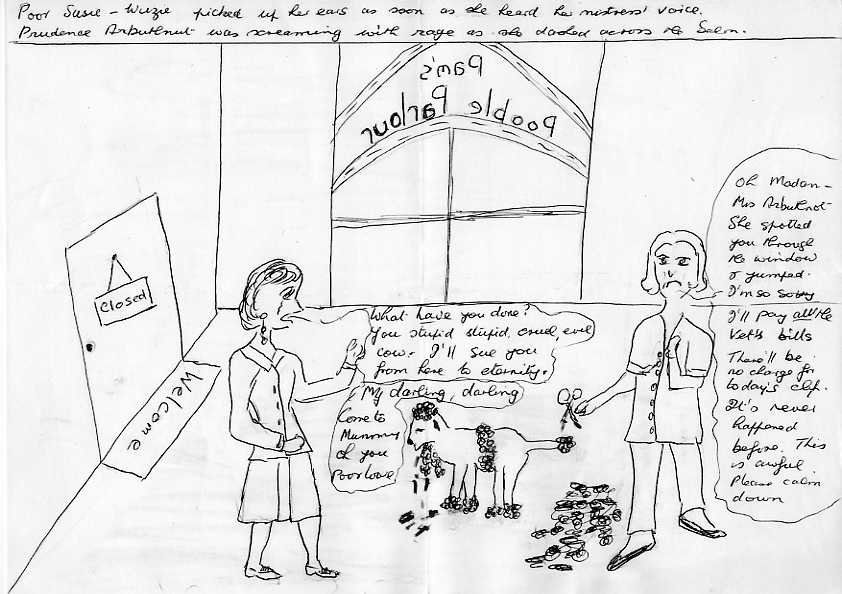 Poor Susie-Wuzie picked up her ears as soon as she heard her mistress' voice.
Prudence Arbuthnot was screaming with rage as she dashed across the Salon.
Pam's
Poodle Parlour
Closed
Welcome
What have you done?
You stupid stupid, cruel, evil
cow. I'll sue you
from here to eternity.
My darling, darling
Come to
Mummy
oh you
Poor love
Oh Madam -
Mrs Arbuthnot
She spotted
you through
the window
& jumped.
I'm so sorry
I'll pay all the
Vet's bills
There'll be
no charge for
today's clip.
It's never
happened
before. This
is awful.
Please calm
down